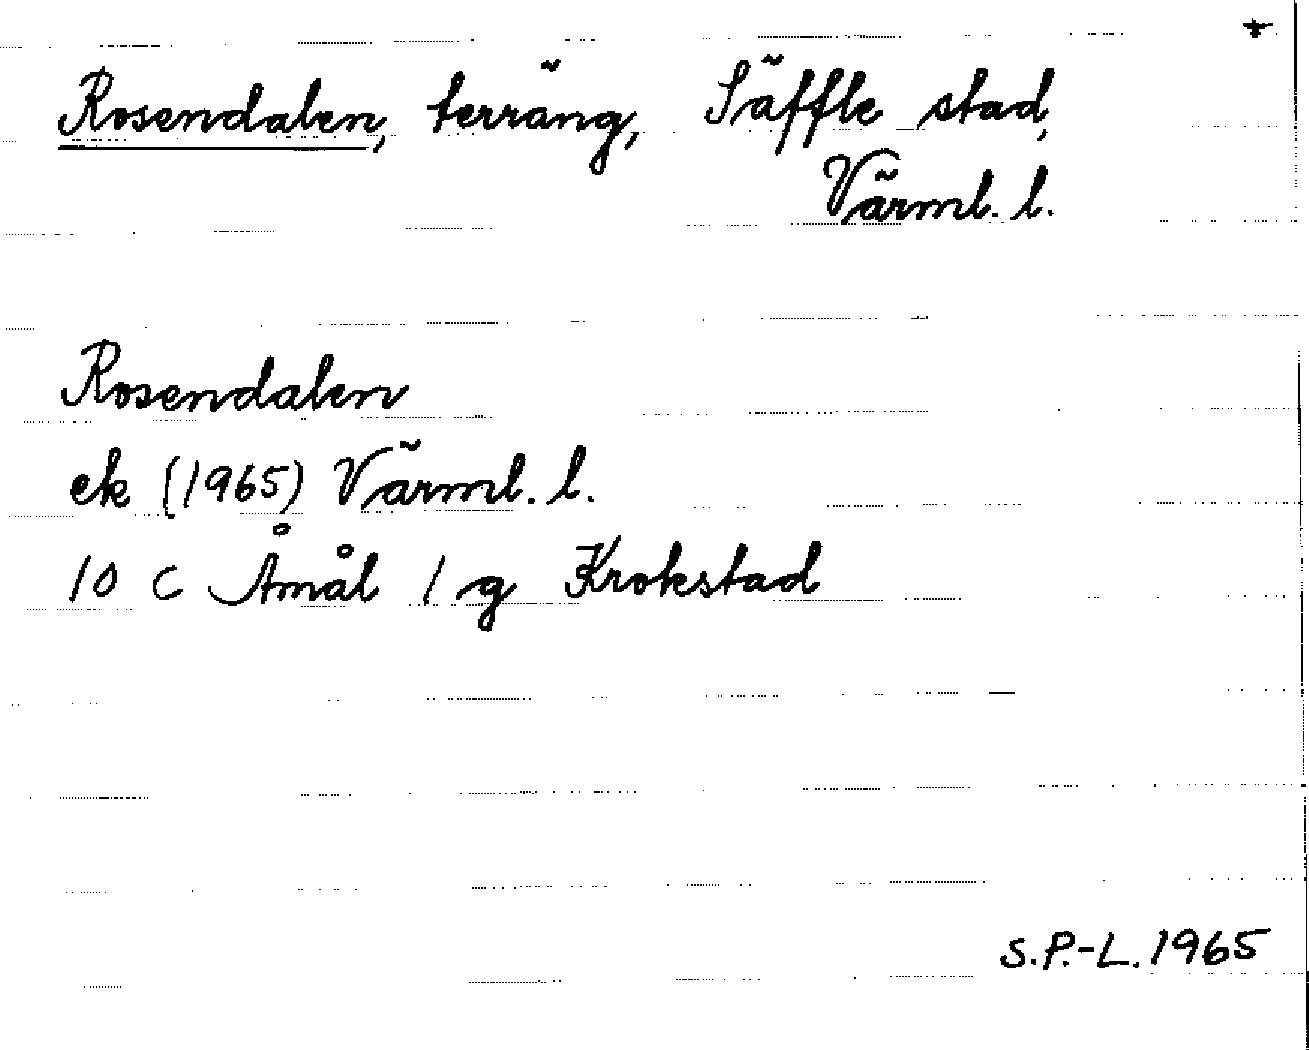 Rosendalen, terräng, Säffle stad,
Värml. l.
Rosendalen
ek (1965) Värml. l.
10 C Åmål 1 g Krokstad
S.P.-L. 1965